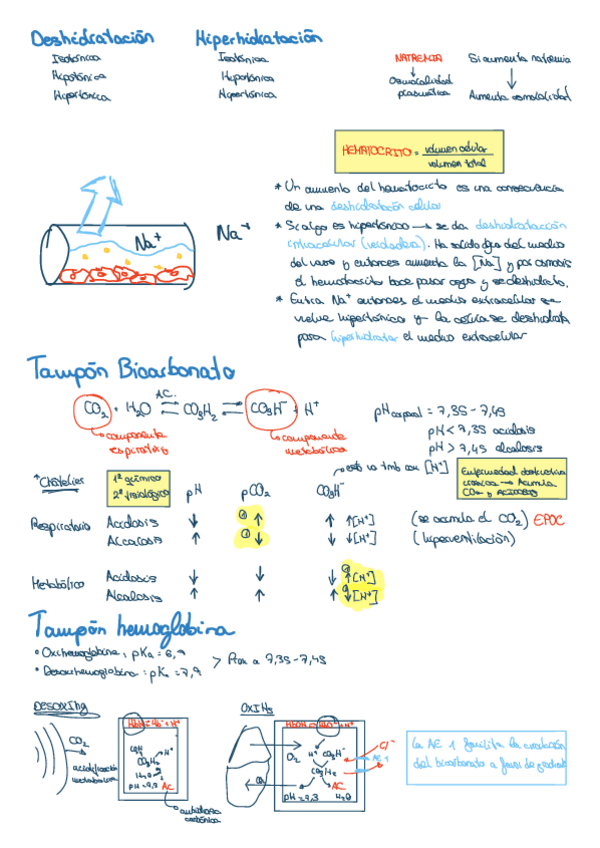 Deshidratación
Hiperhidratación
Isotónica
Hipotónica
Hipertónica
Isotónica
Hipotónica
Hipertónica
NATREMIA
Osmolalidad
plasmática
Si aumenta natremia
Aumenta osmolalidad
HEMATOCRITO = volumen celular
volumen total
Na+
Na+
* Un aumento del hematocrito es una consecuencia
de una deshidratación celular
* Si algo es hipertónico → se da deshidratación
intracelular (verdadera). Ha salido agua del medio
del vaso y entonces aumenta la [Na] y por osmosis
el hematocrito hace pasar agua y se deshidrata.
* Entra Na+ entonces el medio extracelular se
vuelve hipertónico y la célula se deshidrata
para hiperhidratar el medio extracelular
Tampón Bicarbonato
CO2 + H2O A.C. ⇌ CO3H2 ⇌ CO3H- + H+
componente
respiratorio
componente
metabólico
pH corporal = 7,35 - 7,45
pH < 7,35 acidosis
pH > 7,45 alcalosis
esto va tmb con [H+]
Enfermedad obstructiva
crónica → Acumula
CO2 y ACIDOSIS
*Châtelier
1º químico
2º fisiológico
pH pCO2 CO3H-
Respiratorio Acidosis ↓ ① ↑ ↑ ↑[H+] (se acumula el CO2) EPOC
Alcalosis ↑ ① ↓ ↓ ↓[H+] (hiperventilación)
Metabólico Acidosis ↓ ↓ ↑[H+]
Alcalosis ↑ ↑ ↓[H+]
Tampón hemoglobina
• Oxihemoglobina: pKa = 6,
• Desoxihemoglobina: pKa = 7,9
> Prox a 7,35 - 7,45
DESOXIHg
CO2
acidificación
metabólica
H+
CO3H-
H2O
AC
anhidrasa
carbónica
OXIHg
O2
H+ CO3H-
CO3H2
CO2
AC
H2O
Cl-
AE 1
La AE 1 facilita la circulación
del bicarbonato a favor de gradiente